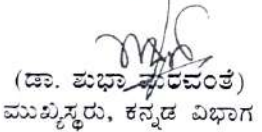 (ಡಾ. ಶುಭಾ ಮರವಂತೆ)
ಮುಖ್ಯಸ್ಥರು, ಕನ್ನಡ ವಿಭಾಗ